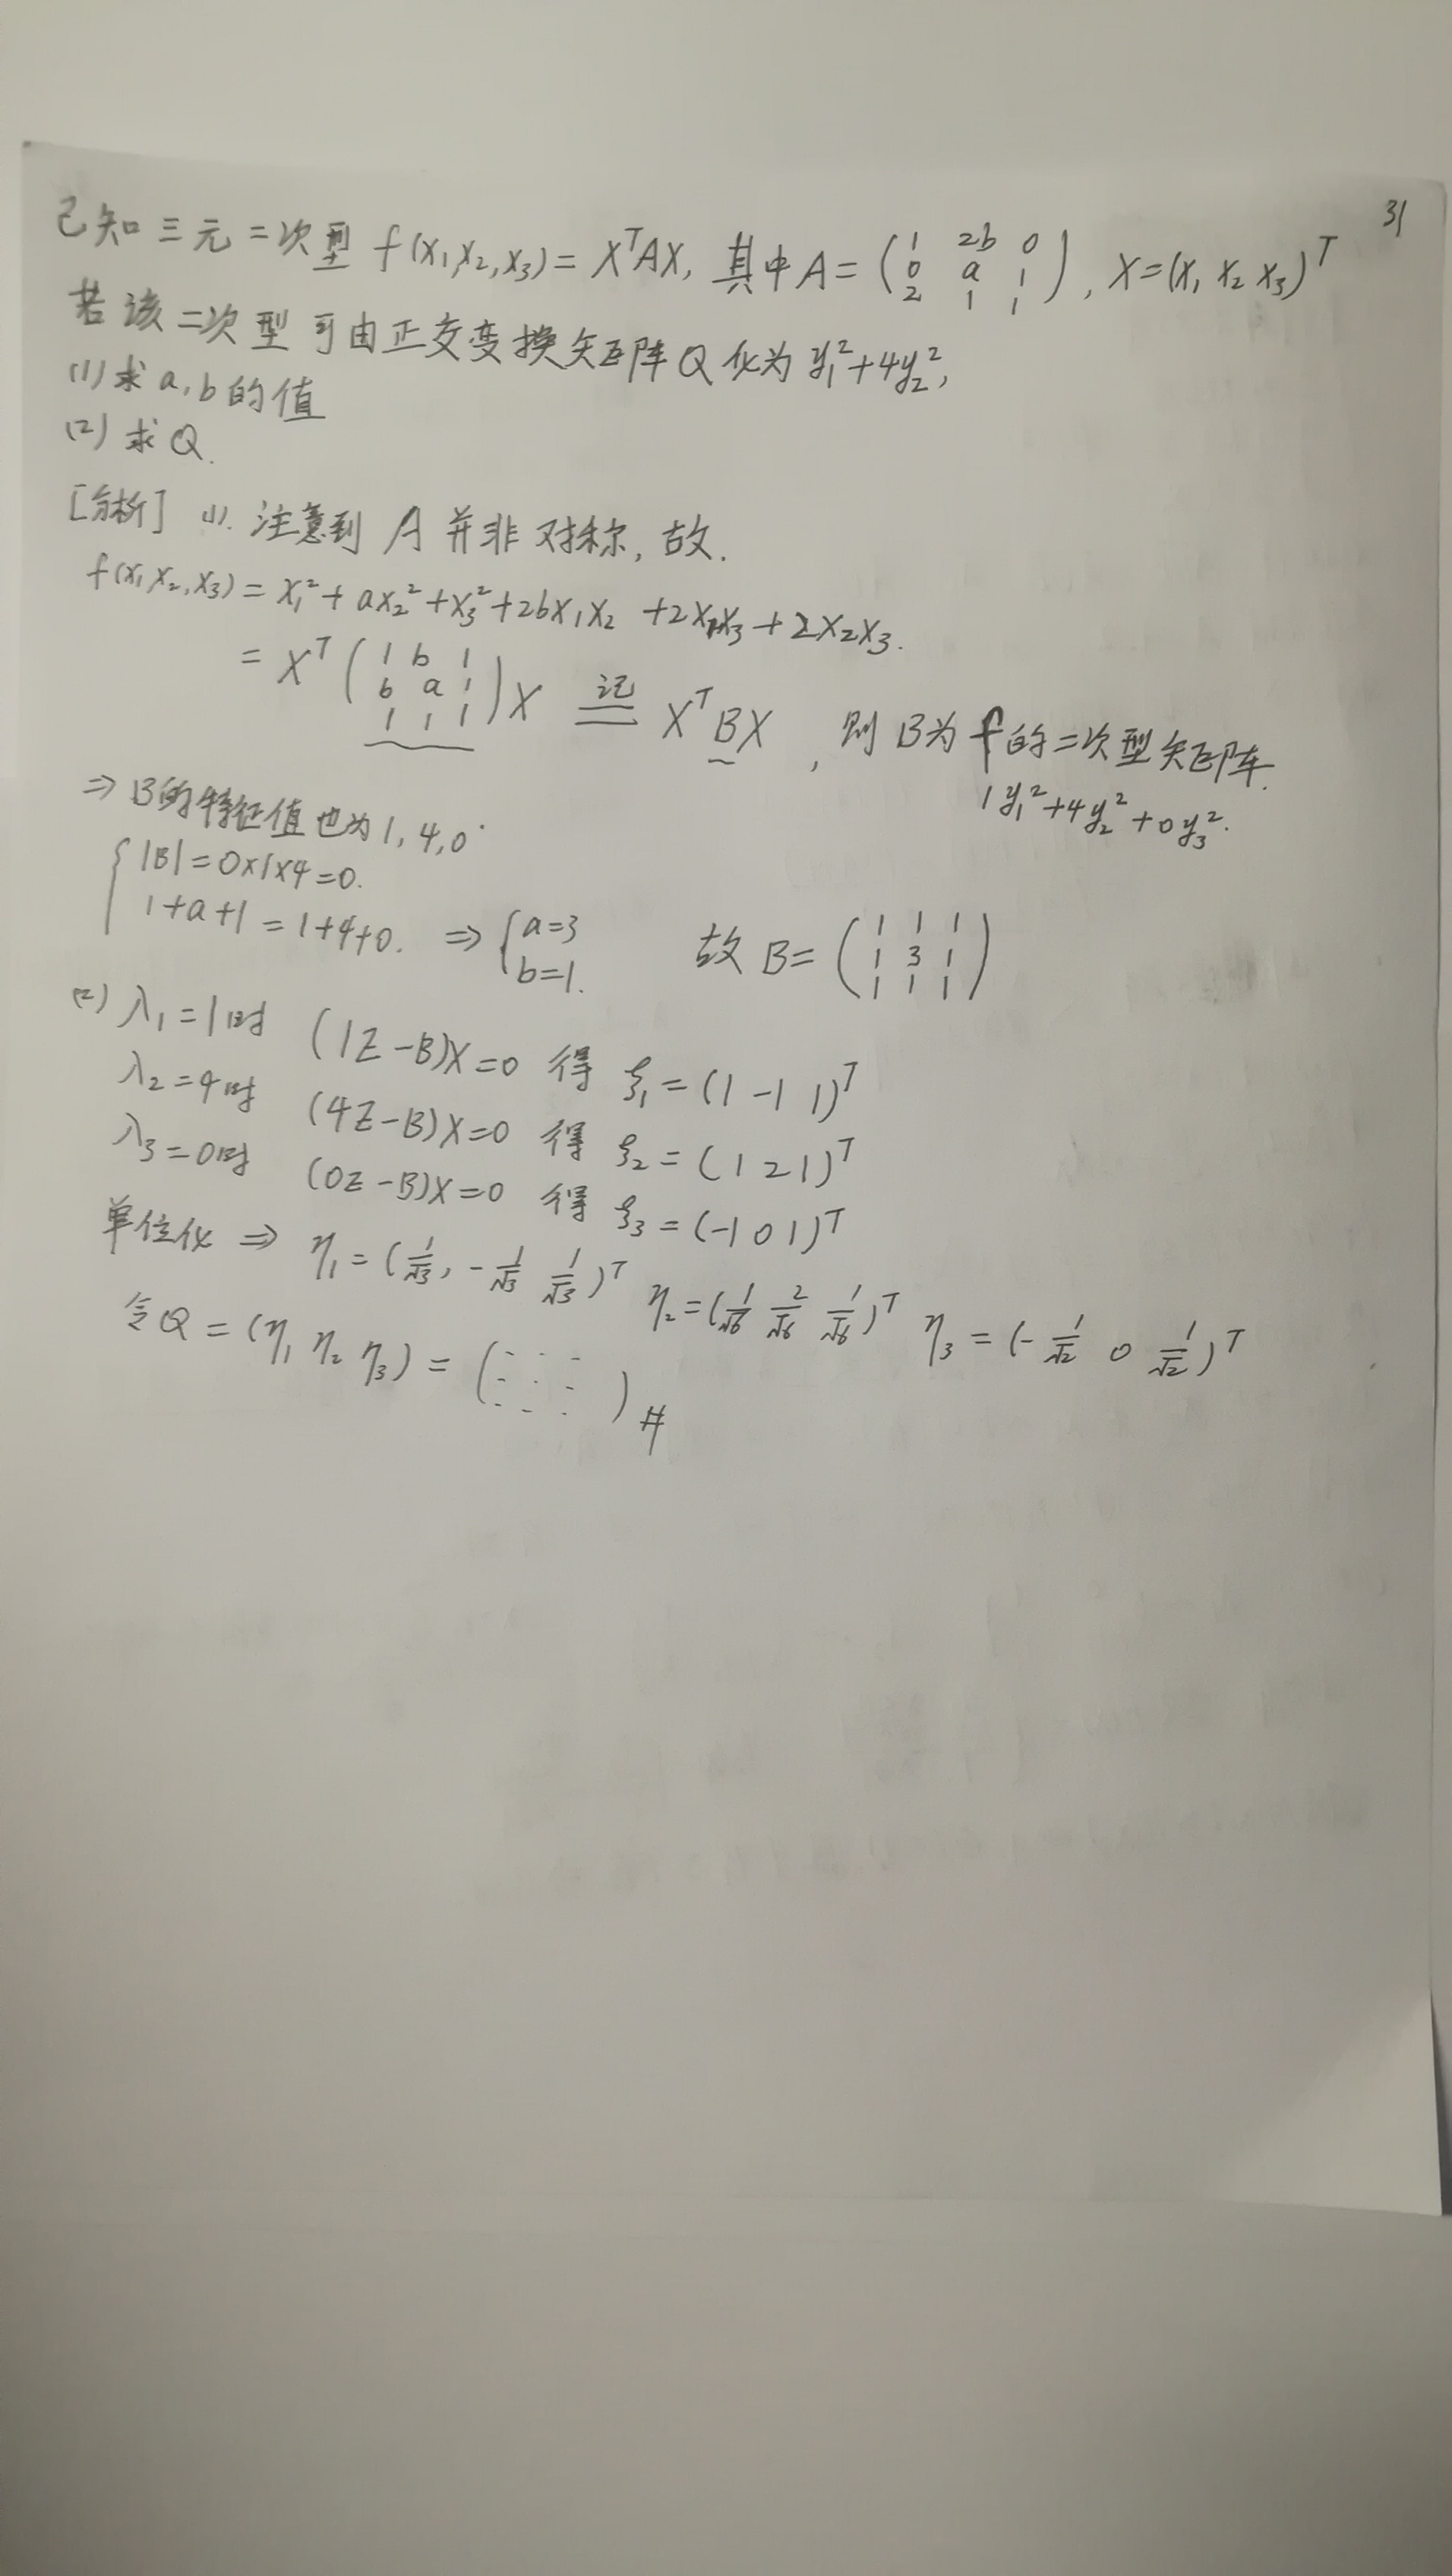 31
已知三元二次型 f(x₁,x₂,x₃)=XᵀAX, 其中A=(1 2b 0; 0 a 1; 2 1 1), X=(x₁ x₂ x₃)ᵀ
若该二次型可由正交变换矩阵Q化为 y₁²+4y₂²,
(1)求a,b的值
(2)求Q.
[分析] (1). 注意到A并非对称, 故.
f(x₁,x₂,x₃)=x₁²+ax₂²+x₃²+2bx₁x₂+2x₁x₃+2x₂x₃.
=Xᵀ(1 b 1; b a 1; 1 1 1)X 记 XᵀBX, 则B为f的二次型矩阵.
⇒B的特征值也为1,4,0. 1y₁²+4y₂²+0y₃².
{|B|=0×1×4=0.
1+a+1=1+4+0. ⇒{a=3 b=1. 故B=(1 1 1; 1 3 1; 1 1 1)
(2) λ₁=1时 (1E-B)X=0 得 ξ₁=(1 -1 1)ᵀ
λ₂=4时 (4E-B)X=0 得 ξ₂=(1 2 1)ᵀ
λ₃=0时 (0E-B)X=0 得 ξ₃=(-1 0 1)ᵀ
单位化⇒ η₁=(1/√3, -1/√3 1/√3)ᵀ η₂=(1/√6 2/√6 1/√6)ᵀ η₃=(-1/√2 0 1/√2)ᵀ
令Q=(η₁ η₂ η₃)=(- - -; - - -; - - -)#